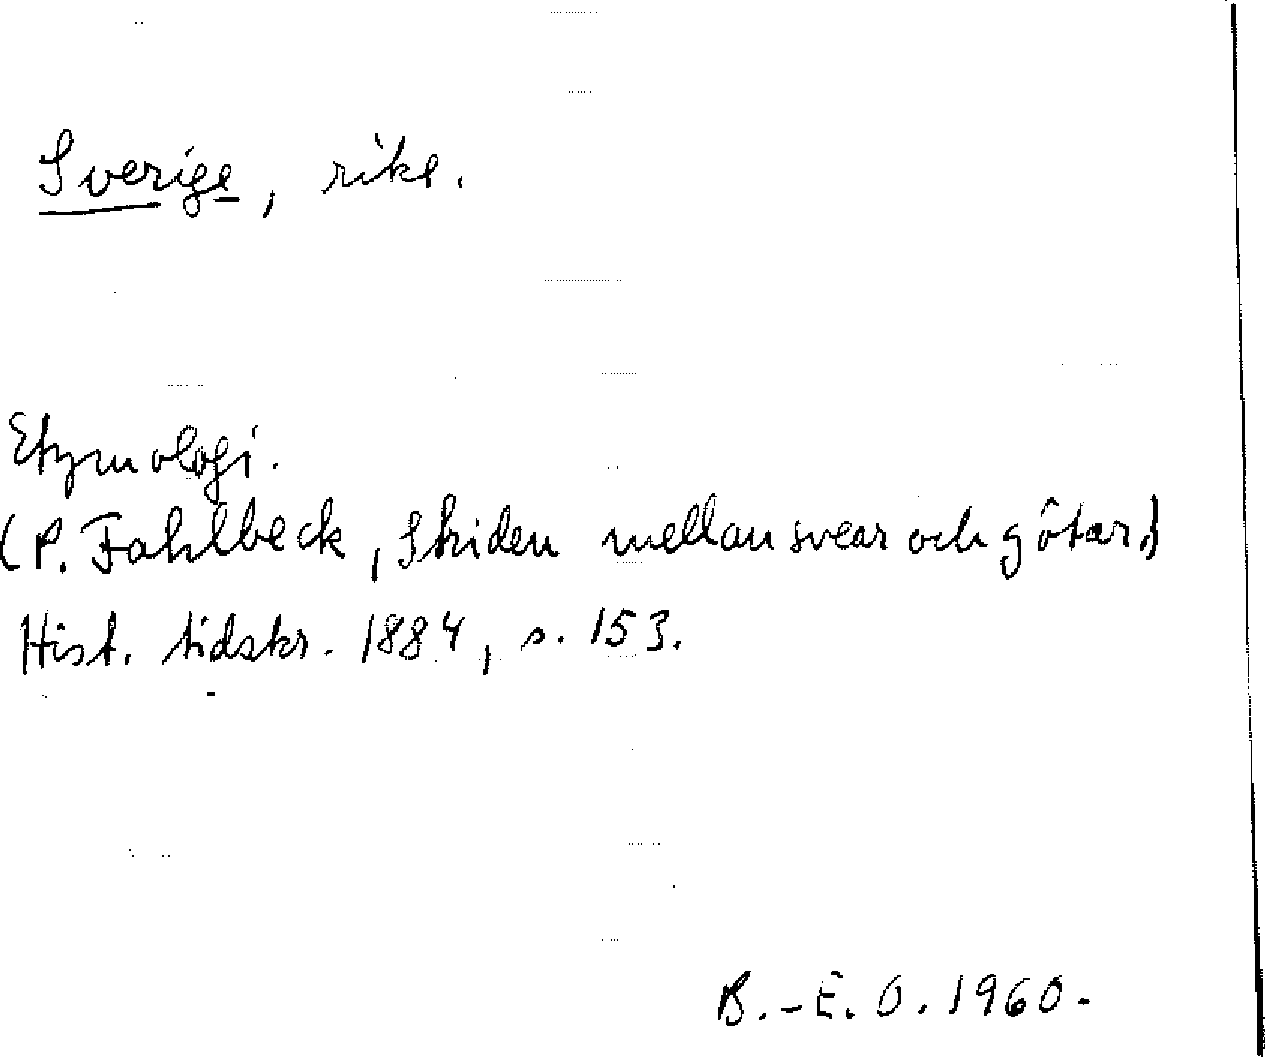 Sverige, rike.
Etymologi.
(P. Fahlbeck, Striden mellan svear och götar.)
Hist. tidskr. 1884, s. 153.
B.-E. O. 1960.